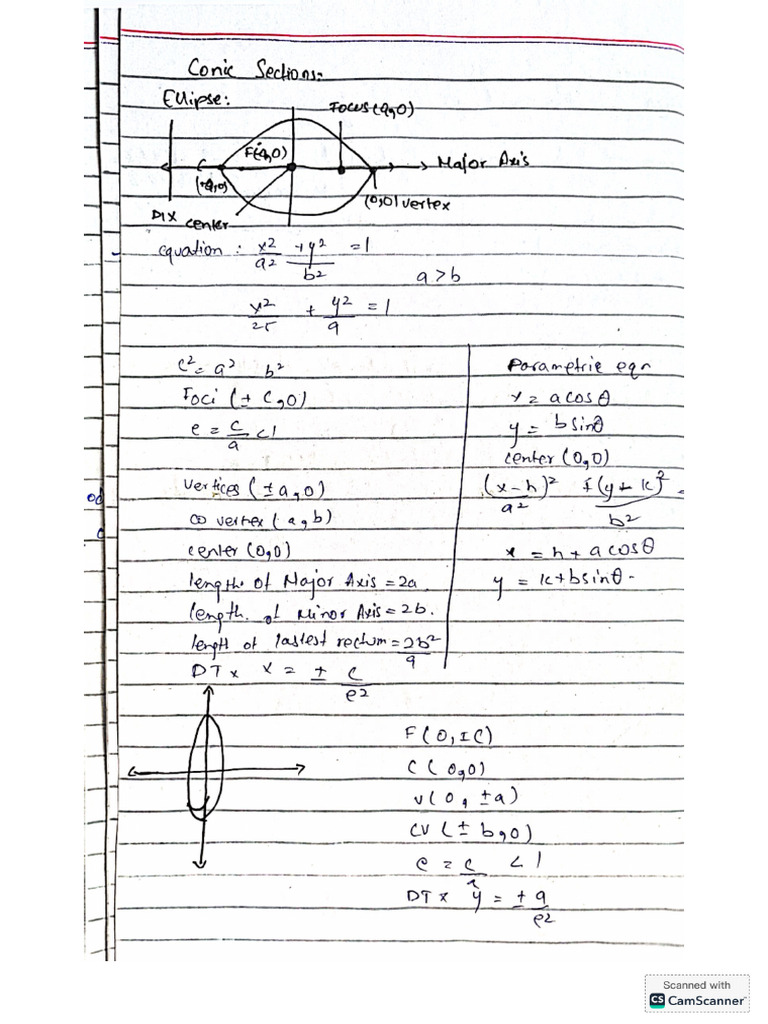 Conic Sections:
Ellipse:
Focus (a,0)
F(-a,0)
Major Axis
(-a,0)
(0,0) vertex
DIX
center
equation : x²/a² + y²/b² = 1
a > b
x²/25 + y²/9 = 1
c² = a² b²
Foci (± c,0)
e = c/a < 1
vertices (± a,0)
co vertex ( a, b)
center (0,0)
length of Major Axis = 2a
length of Minor Axis = 2b.
length of lastest rectum = 2b²/a
DTx x = ± c/e²
Parametric eqn
x = a cos θ
y = b sin θ
center (0,0)
(x-h)²/a² + (y-k)²/b² =
x = h + a cos θ
y = k + b sin θ.
od
F(0, ±c)
C (0,0)
v(0, ±a)
CV (± b,0)
e = c/a < 1
DTx y = ± a/e²
Scanned with
CS CamScanner